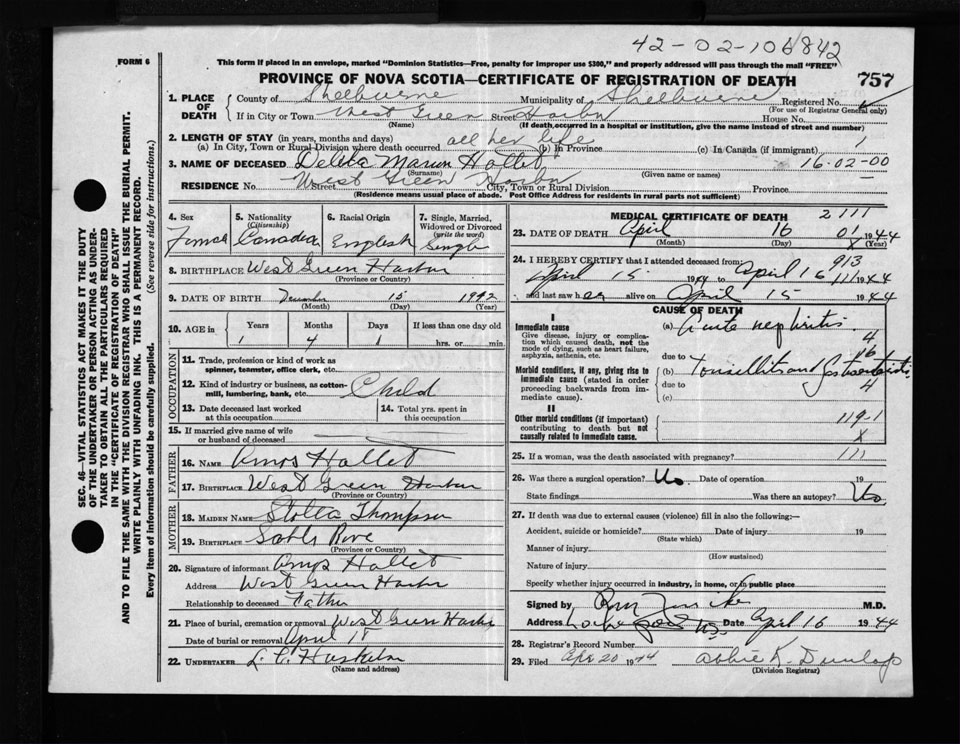 42-02-106842
FORM 6
This form if placed in an envelope, marked "Dominion Statistics—Free, penalty for improper use $300," and properly addressed will pass through the mail "FREE"
PROVINCE OF NOVA SCOTIA—CERTIFICATE OF REGISTRATION OF DEATH
757
1. PLACE OF DEATH
County of Shelburne Municipality of Shelburne Registered No.
(For use of Registrar General only)
If in City or Town West Green Harbor Street House No.
(Name) (If death occurred in a hospital or institution, give the name instead of street and number)
2. LENGTH OF STAY (in years, months and days)
(a) In City, Town or Rural Division where death occurred all her life (b) In Province (c) In Canada (if immigrant) 1
3. NAME OF DECEASED Hallet 16-02-00
(Surname) (Given name or names)
RESIDENCE No. Street West Green Harbor City, Town or Rural Division Province
(Residence means usual place of abode. Post Office Address for residents in rural parts not sufficient)
4. Sex Female
5. Nationality (Citizenship) Canadian
6. Racial Origin English
7. Single, Married, Widowed or Divorced (write the word) Single
8. BIRTHPLACE West Green Harbor
(Province or Country)
9. DATE OF BIRTH December 15 1942
(Month) (Day) (Year)
10. AGE in Years Months Days If less than one day old
1 4 1 hrs. or min.
OCCUPATION
11. Trade, profession or kind of work as spinner, teamster, office clerk, etc.
12. Kind of industry or business, as cotton-mill, lumbering, bank, etc. Child
13. Date deceased last worked at this occupation
14. Total yrs. spent in this occupation
15. If married give name of wife or husband of deceased
FATHER
16. NAME Amos Hallet
17. BIRTHPLACE West Green Harbor
(Province or Country)
MOTHER
18. MAIDEN NAME Thompson
19. BIRTHPLACE
(Province or Country)
20. Signature of informant Amos Hallet
Address West Green Harbor
Relationship to deceased Father
21. Place of burial, cremation or removal West Green Harbor
Date of burial or removal April
22. UNDERTAKER
(Name and address)
MEDICAL CERTIFICATE OF DEATH 2111
23. DATE OF DEATH April 16 01 1944
(Month) (Day) X (Year)
24. I HEREBY CERTIFY that I attended deceased from: 913
April 15 1944 to April 16 111 1944
and last saw her alive on April 15 1944
CAUSE OF DEATH
I
Immediate cause
Give disease, injury or complication which caused death, not the mode of dying, such as heart failure, asphyxia, asthenia, etc.
(a) Acute nephritis. 4
due to 16
Morbid conditions, if any, giving rise to immediate cause (stated in order proceeding backwards from immediate cause).
(b) Tonsillitis and gastroenteritis
due to 4
(c)
II
Other morbid conditions (if important) contributing to death but not causally related to immediate cause.
119-1
X
25. If a woman, was the death associated with pregnancy? 111
26. Was there a surgical operation? No. Date of operation 19
State findings Was there an autopsy? No
27. If death was due to external causes (violence) fill in also the following:—
Accident, suicide or homicide? Date of injury 19
(State which)
Manner of injury
(How sustained)
Nature of injury
Specify whether injury occurred in industry, in home, or in public place
Signed by M.D.
Address Date April 16 1944
28. Registrar's Record Number
29. Filed Apr 20 1944 Abbie K. Dunlap
(Division Registrar)
SEC. 46—VITAL STATISTICS ACT MAKES IT THE DUTY
OF THE UNDERTAKER OR PERSON ACTING AS UNDERTAKER
TO OBTAIN ALL THE PARTICULARS REQUIRED
IN THE "CERTIFICATE OF REGISTRATION OF DEATH"
AND TO FILE THE SAME WITH THE DIVISION REGISTRAR WHO SHALL ISSUE THE BURIAL PERMIT.
WRITE PLAINLY WITH UNFADING INK. THIS IS A PERMANENT RECORD.
Every item of information should be carefully supplied. (See reverse side for instructions.)